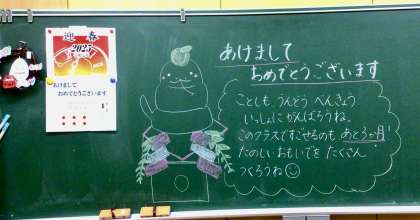 迎春
2025
あけまして
おめでとうございます
あけまして
おめでとうございます
ことしも、うんどう べんきょう
いっしょに がんばろうね。
このクラスですごせるのも あと3か月!
たのしい おもいでを たくさん
つくろうね